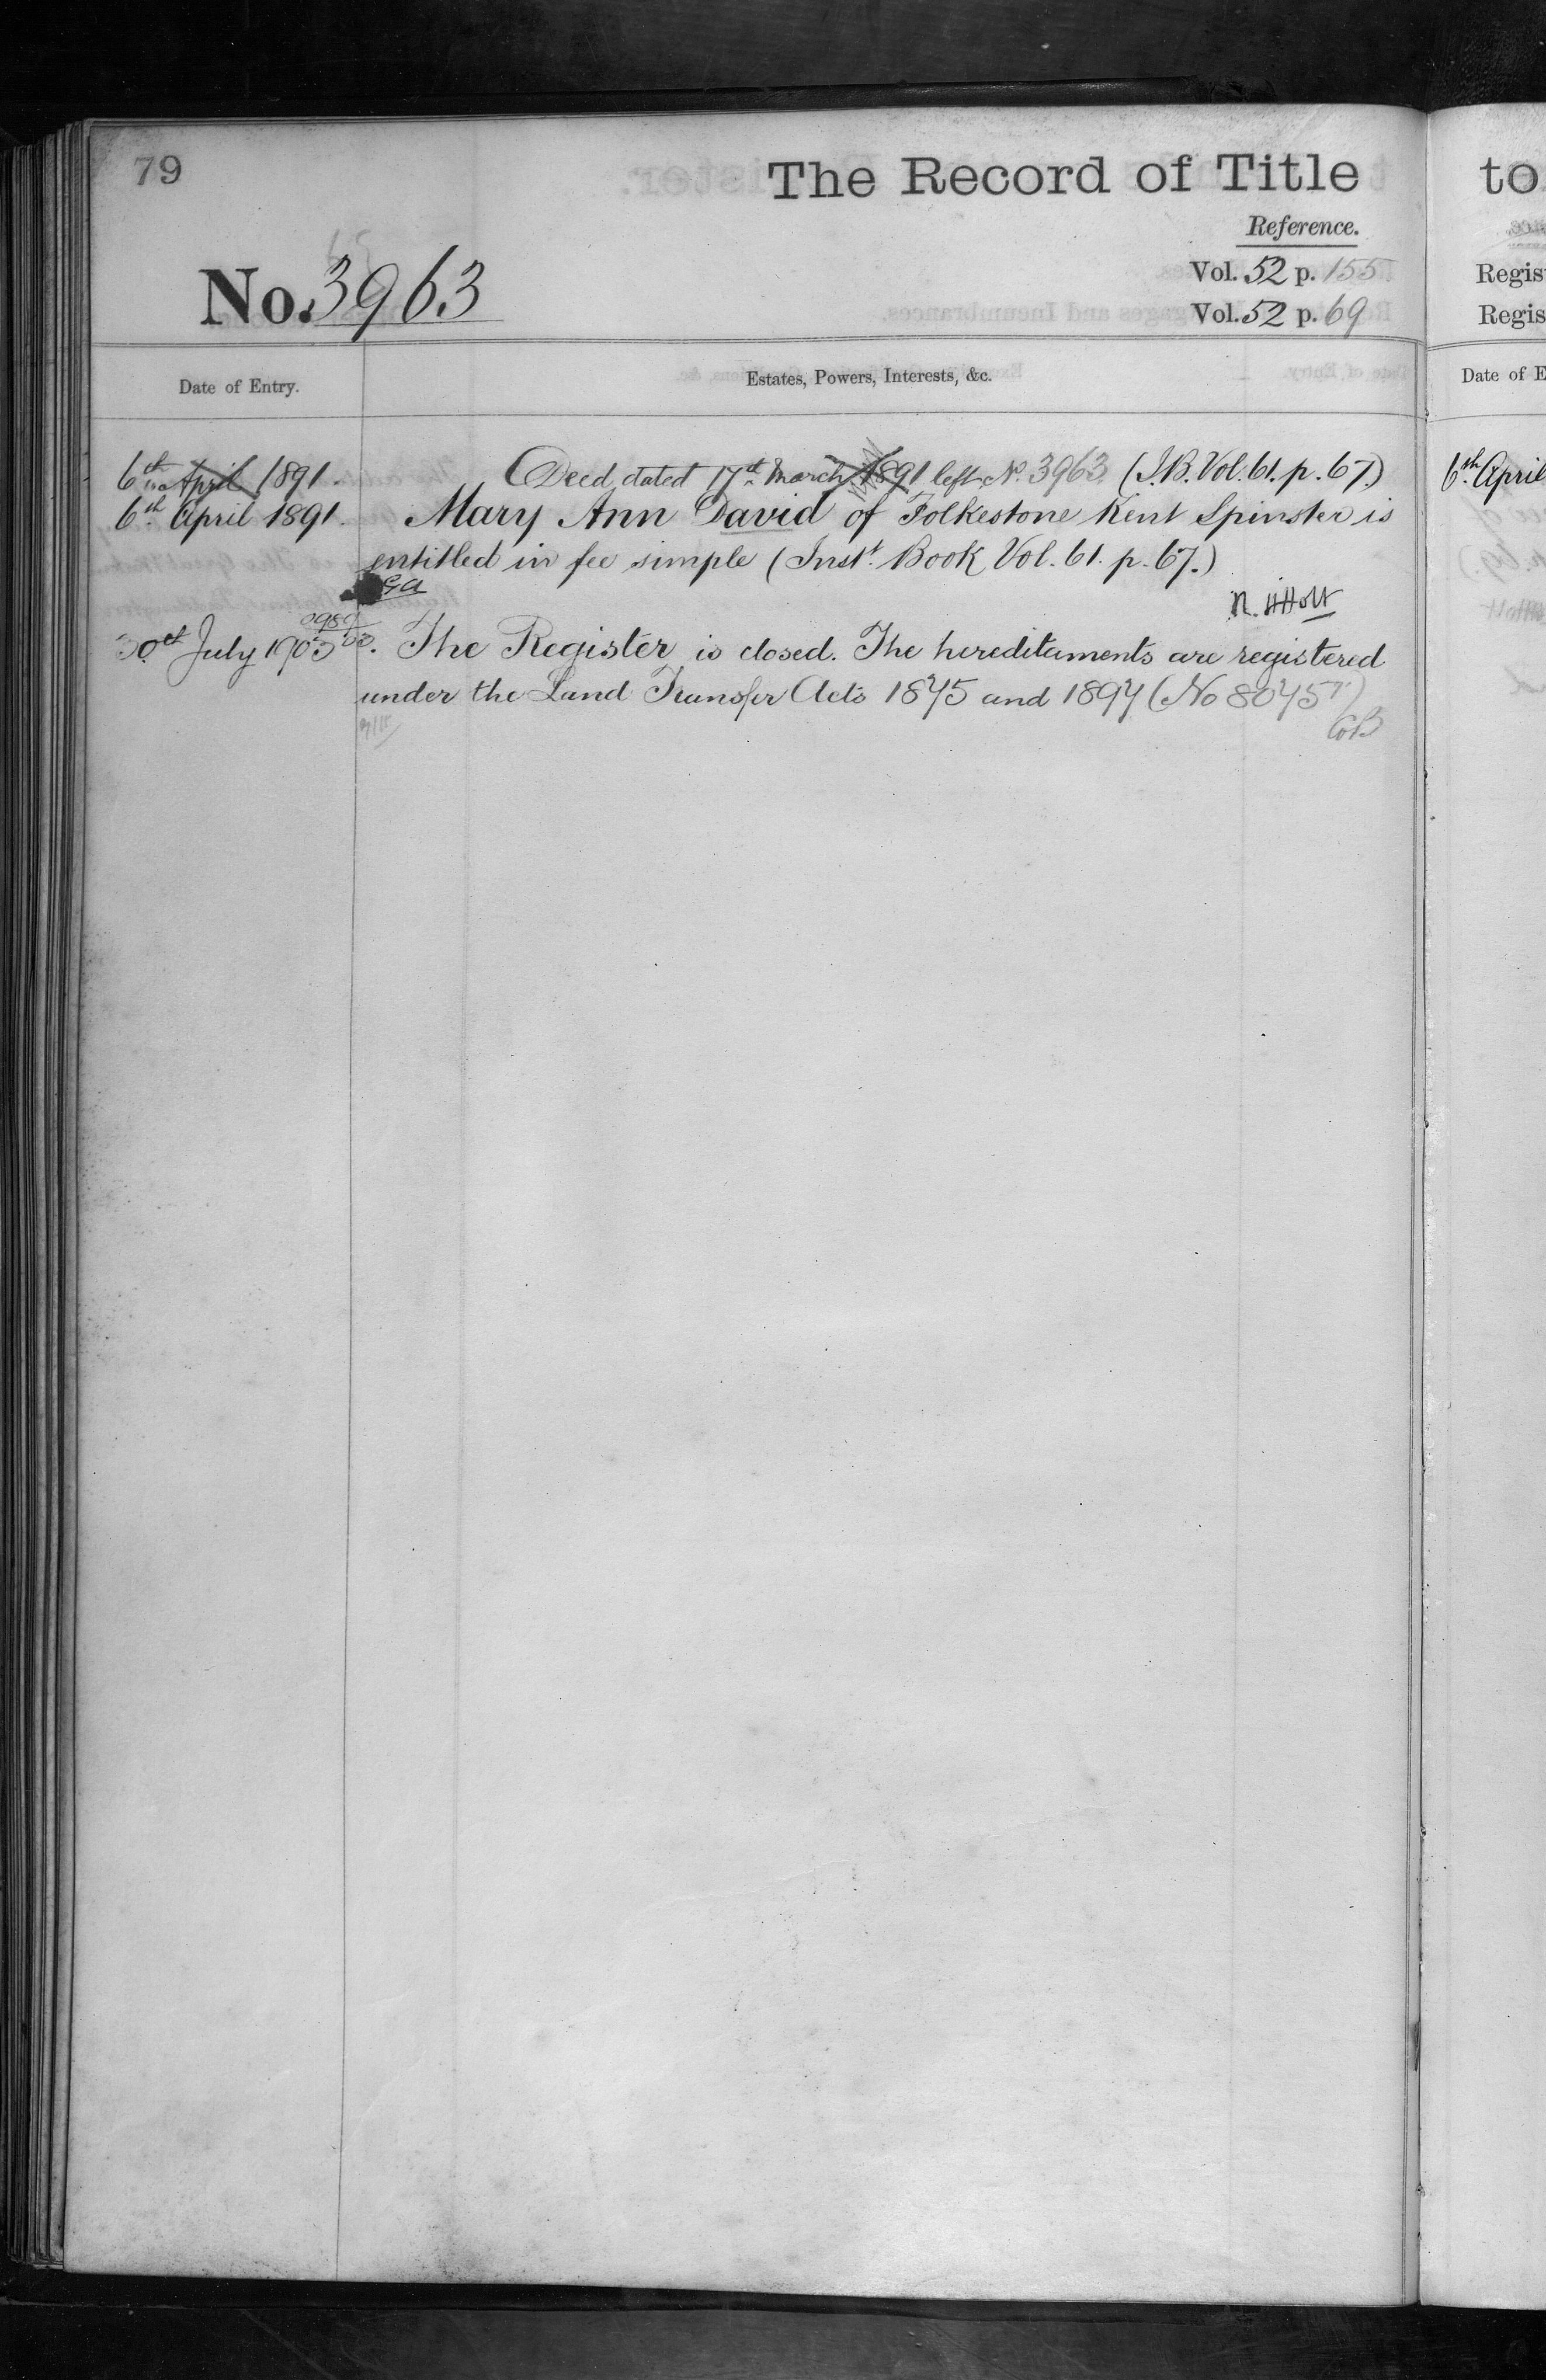 79
The Record of Title
Reference.
Vol. 52 p. 155
No. 3963
Vol. 52 p. 69
Date of Entry.
Estates, Powers, Interests, &c.
6th April 1891.
Deed dated 17th March 1891 left No. 3963 (I.B. Vol. 61. p. 67.)
6th April 1891.
Mary Ann David of Folkestone Kent Spinster is
entitled in fee simple (Instt. Book Vol. 61. p. 67.)
30th July 1903.
The Register is closed. The hereditaments are registered
under the Land Transfer Acts 1875 and 1897 (No 80457)
to
Regis
Regis
Date of E
6th April